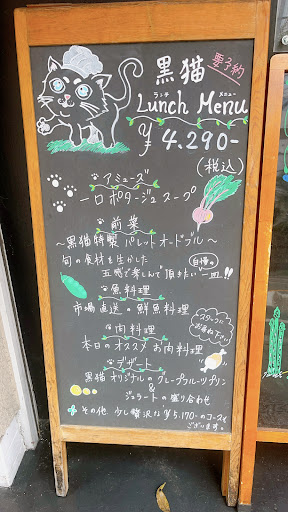 黒猫
要予約
ランチ メニュー
Lunch Menu
¥4.290-
(税込)
アミューズ
一口ポタージュスープ
前菜
〜黒猫特製 パレットオードブル〜
旬の食材を生かした
五感で楽しんで頂きたい 自慢の 一皿!!
魚料理
市場直送の鮮魚料理
スタッフに
お尋ね下さい
肉料理
本日のオススメ お肉料理
デザート
黒猫オリジナルのグレープフルーツプリン
&
ジェラートの盛り合わせ
その他 少し贅沢な¥5.170-のコースも
ございます。